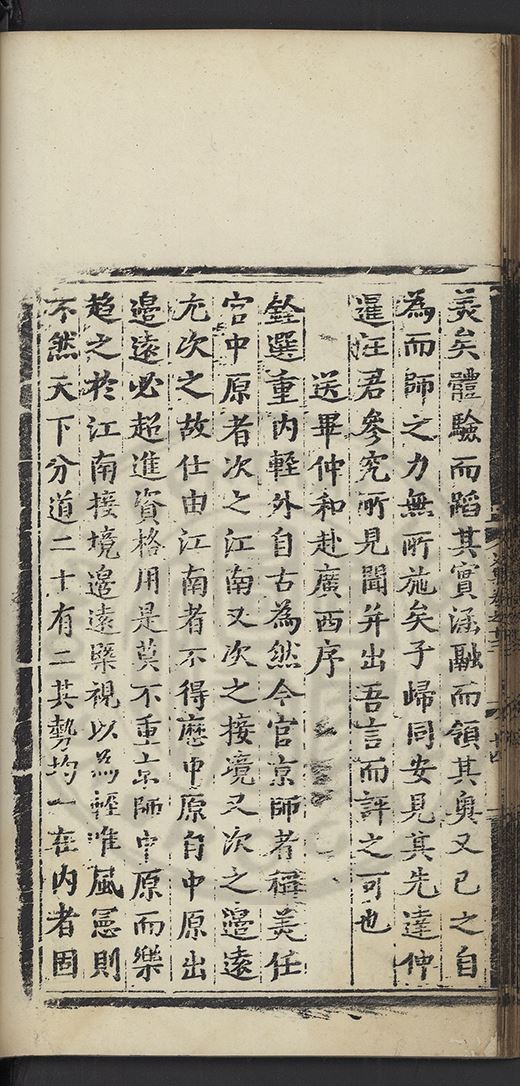 美矣體驗而蹈其實涵融而領其奥又已之自
為而師之力無所施矣子歸同安見其先達仲
暹汪君參究所見聞并出吾言而評之可也
送畢仲和赴廣西序
銓選重内輕外自古為然今官京師者稱美任
官中原者次之江南又次之接境又次之邉遠
尤次之故仕由江南者不得歴中原自中原出
邉遠必超進資格用是莫不重京師中原而樂
趋之於江南接境邉遠槩視以為輕唯風憲則
不然天下分道二十有二其勢均一在内者固